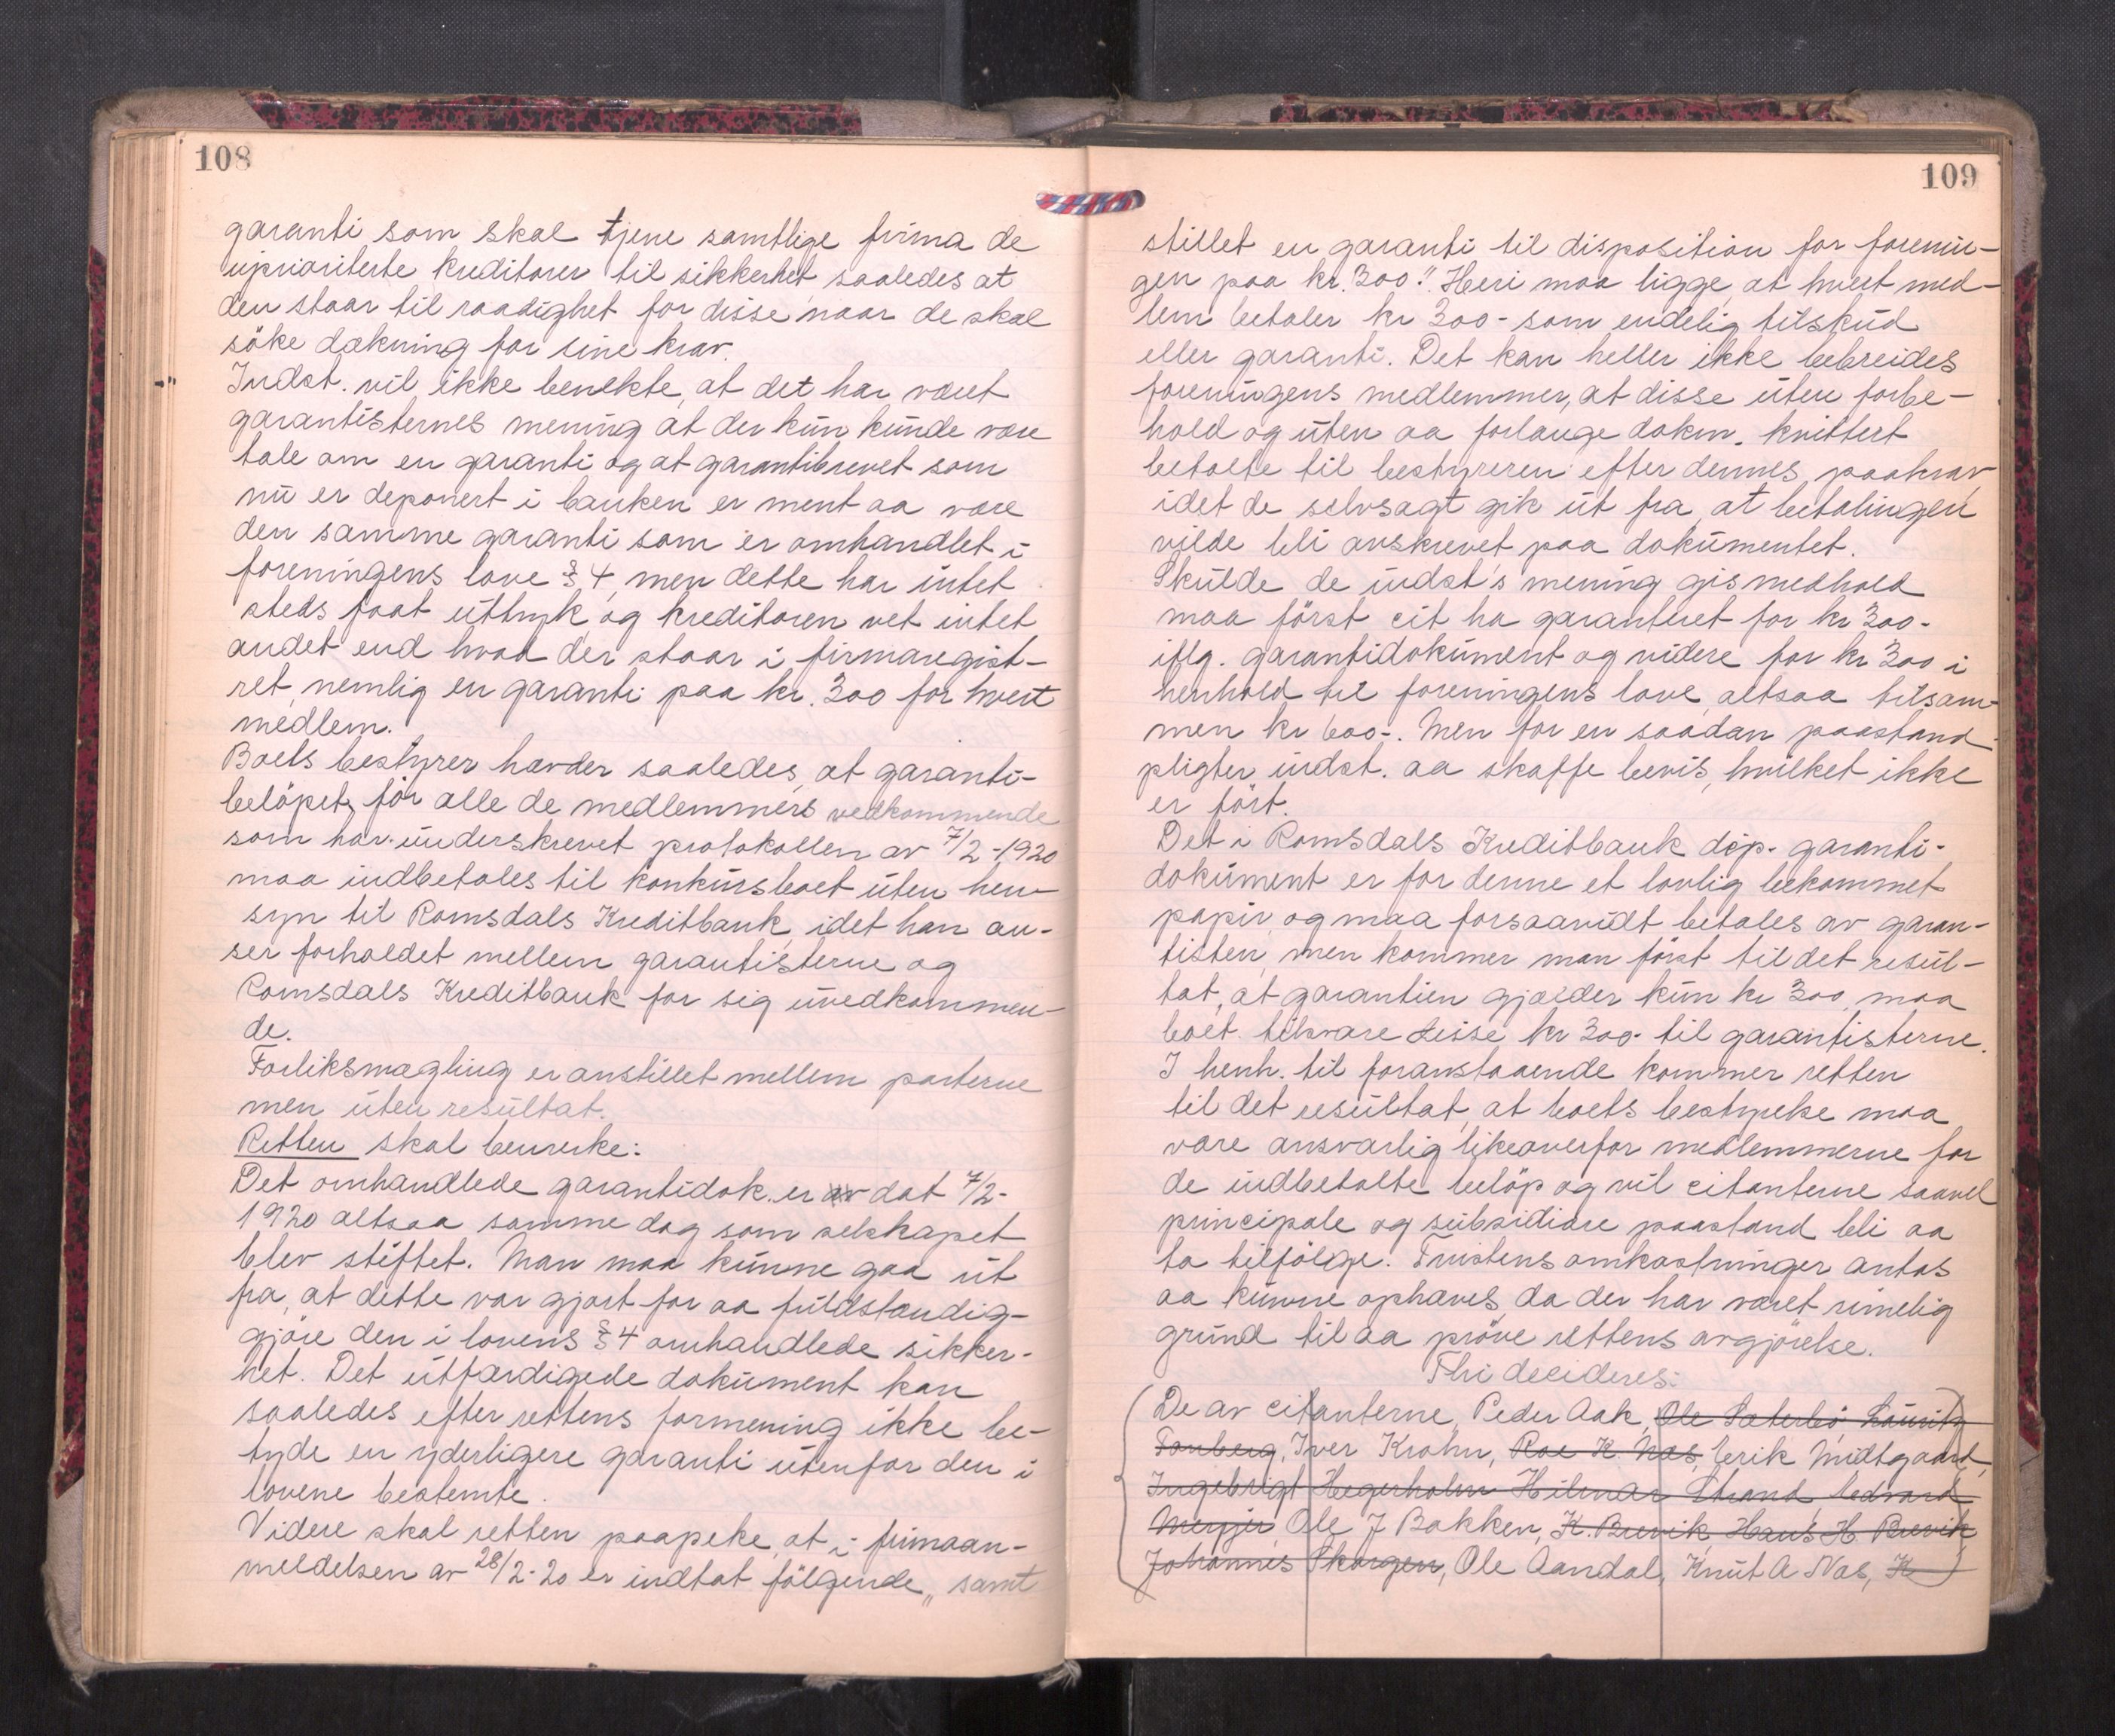 108
garanti som skal tjene samtlige firma de
uprioriterte kreditorer til sikkerhet, saaledes at
den staar til raadighet for disse, naar de skal
söke dækning for sine krav.
Indst. vil ikke benekte, at det har været
garantisternes mening at der kun kunde være
tale om en garanti og at garantibrevet som
nu er deponert i banken er ment aa være
den samme garanti som er omhandlet i
foreningens love § 4, men dette har intet
steds faat uttryk, og kreditoren vet intet
andet end hvad der staar i firmaregist-
ret, nemlig en garanti paa kr. 300 for hvert
medlem.
Boets bestyrer hævder saaledes, at garanti-
belöpet, for alle de medlemmers vedkommende
som har underskrevet protokollen av 7/2-1920
maa indbetales til konkursboet uten hen-
syn til Romsdals Kreditbank, idet han an-
ser forholdet mellem garantisterne og
Romsdals Kreditbank for sig uvedkommen-
de.
Forliksmægling er anstillet mellem parterne
men uten resultat.
Retten skal bemerke:
Det omhandlede garantidok. er av dat 7/2-
1920 altsaa samme dag som selskapet
blev stiftet. Man maa kunne gaa ut
fra, at dette var gjort for aa fuldstændig-
gjöre den i lovens § 4 omhandlede sikker-
het. Det utfærdigede dokument kan
saaledes efter rettens formening ikke be-
tyde en yderligere garanti utenfor den i
lovene bestemte.
Videre skal retten paapeke, at i firmaan-
meldelsen av 28/2-20 er indtat fölgende „samt
109
stillet en garanti til disposition for forenin-
gen paa kr. 300." Heri maa ligge, at hvert med-
lem betaler kr 300- som endelig tilskud
eller garanti. Det kan heller ikke bebreides
foreningens medlemmer, at disse uten forbe-
hold og uten aa forlange dokm. kvittert
betalte til bestyreren efter dennes paakrav
idet de selvsagt gik ut fra, at betalingen
vilde bli avskrevet paa dokumentet.
Skulde de indst's mening gis medhold
maa först cit ha garanteret for kr 300-
iflg. garantidokument og videre for kr 300 i
henhold til foreningens love, altsaa tilsam-
men kr 600-. Men for en saadan paastand
pligter indst. aa skaffe bevis, hvilket ikke
er fört.
Det i Romsdals Kreditbank dep. garanti-
dokument er for denne et lovlig bekommet
papir, og maa forsaavidt betales av garan-
tisten, men kommer man först til det resul-
tat, at garantien gjælder kun kr 300, maa
boet tilsvare disse kr 300- til garantisterne.
I henh. til foranstaaende kommer retten
til det resultat, at boets bestyrelse maa
være ansvarlig likeoverfor medlemmerne for
de indbetalte belöp og vil citanterne saavel
principale og subsidiære paastand bli aa
ta tilfölge. Tvistens omkostninger antas
aa kunne ophæves, da der har været rimelig
grund til aa pröve rettens avgjörelse.
Thi decideres:
De av citanterne, Peder Aak, Ole Sæterbö, Lauritz
Tonberg, Iver Krohn, Roe K. Næs, Erik Midtgaard,
Ingebrigt Hegerholm Hilmar Strand Edvard
Meyer, Ole J Bakken, K. Brevik, Hans H Brevik
Johannes Skorgen, Ole Aandal, Knut A Næs, K